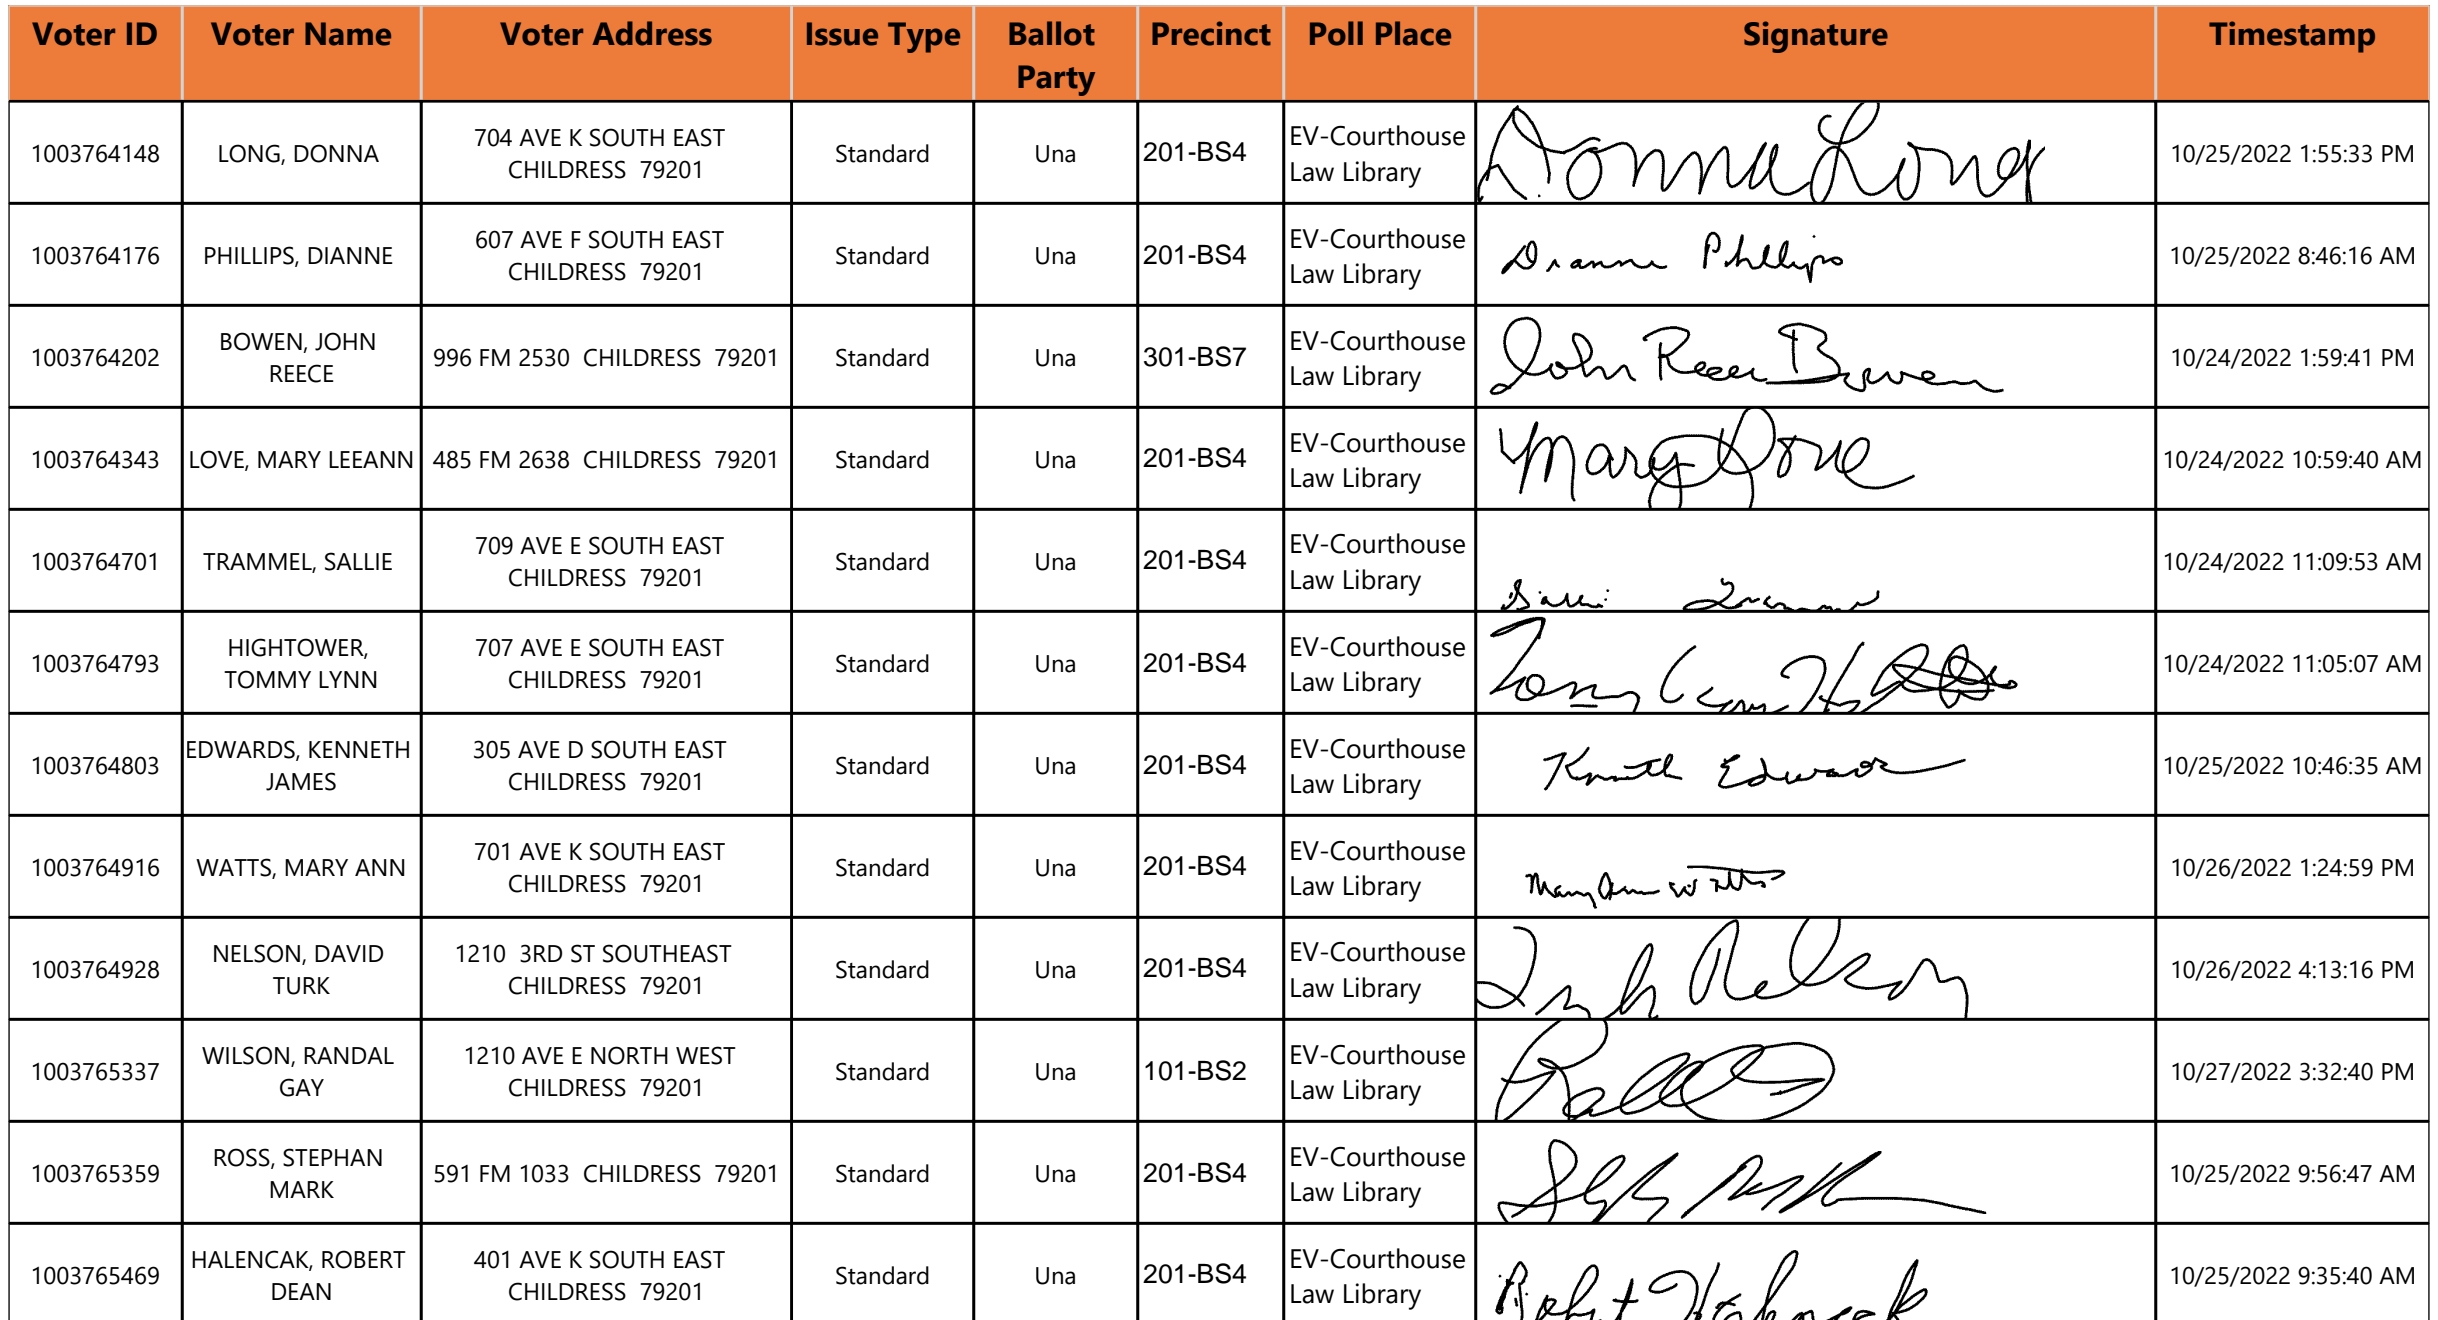 Voter ID Voter Name Voter Address Issue Type Ballot Party Precinct Poll Place Signature Timestamp
1003764148 LONG, DONNA 704 AVE K SOUTH EAST CHILDRESS 79201 Standard Una 201-BS4 EV-Courthouse Law Library Donna Long 10/25/2022 1:55:33 PM
1003764176 PHILLIPS, DIANNE 607 AVE F SOUTH EAST CHILDRESS 79201 Standard Una 201-BS4 EV-Courthouse Law Library Dianne Phillips 10/25/2022 8:46:16 AM
1003764202 BOWEN, JOHN REECE 996 FM 2530 CHILDRESS 79201 Standard Una 301-BS7 EV-Courthouse Law Library John Reece Bowen 10/24/2022 1:59:41 PM
1003764343 LOVE, MARY LEEANN 485 FM 2638 CHILDRESS 79201 Standard Una 201-BS4 EV-Courthouse Law Library Mary Love 10/24/2022 10:59:40 AM
1003764701 TRAMMEL, SALLIE 709 AVE E SOUTH EAST CHILDRESS 79201 Standard Una 201-BS4 EV-Courthouse Law Library Sallie 10/24/2022 11:09:53 AM
1003764793 HIGHTOWER, TOMMY LYNN 707 AVE E SOUTH EAST CHILDRESS 79201 Standard Una 201-BS4 EV-Courthouse Law Library 10/24/2022 11:05:07 AM
1003764803 EDWARDS, KENNETH JAMES 305 AVE D SOUTH EAST CHILDRESS 79201 Standard Una 201-BS4 EV-Courthouse Law Library Kenneth Edwards 10/25/2022 10:46:35 AM
1003764916 WATTS, MARY ANN 701 AVE K SOUTH EAST CHILDRESS 79201 Standard Una 201-BS4 EV-Courthouse Law Library Mary Ann Watts 10/26/2022 1:24:59 PM
1003764928 NELSON, DAVID TURK 1210 3RD ST SOUTHEAST CHILDRESS 79201 Standard Una 201-BS4 EV-Courthouse Law Library Turk Nelson 10/26/2022 4:13:16 PM
1003765337 WILSON, RANDAL GAY 1210 AVE E NORTH WEST CHILDRESS 79201 Standard Una 101-BS2 EV-Courthouse Law Library 10/27/2022 3:32:40 PM
1003765359 ROSS, STEPHAN MARK 591 FM 1033 CHILDRESS 79201 Standard Una 201-BS4 EV-Courthouse Law Library 10/25/2022 9:56:47 AM
1003765469 HALENCAK, ROBERT DEAN 401 AVE K SOUTH EAST CHILDRESS 79201 Standard Una 201-BS4 EV-Courthouse Law Library Robert Halencak 10/25/2022 9:35:40 AM